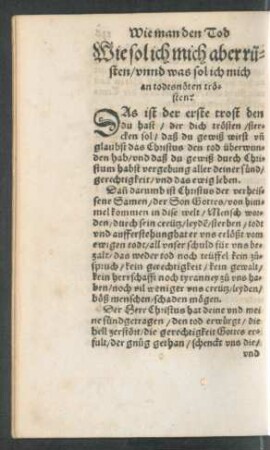 Wie man den Tod
Wie sol ich mich aber rü-
sten/vnnd was sol ich mich
an todesnöten trö-
sten?
DAs ist der erste trost den
du hast/der dich trösten/ster-
cken sol/daß du gewiß wirst vñ
glaubst das Christus den tod überwun-
den hab/vnd daß du gewiß durch Chri-
stum habst vergebung aller deiner sünd/
gerechtigkeit/vnd das ewig leben.
Dañ darumb ist Christus der verheis-
sene Samen/der Son Gottes/von him-
mel kommen in dise welt/Mensch wor-
den/durch sein creütz/leyde/sterben/tod
vnd aufferstehung hat er vns erlößt vom
ewigen todt/all vnser schuld für vns be-
zalt/das weder tod noch teüffel kein zů-
spruch/kein gerechtigkeit/kein gewalt/
kein herrschafft noch tyranney zů vns ha-
ben/noch vil weniger vns creütz/leyden/
böß menschen schaden mögen.
Der Herr Christus hat deine vnd mei-
ne sünd getragen/den tod erwürgt/die
hell zerstört/die gerechtigkeit Gottes er-
fült/der gnůg gethan/schenckt vns die/
vnd